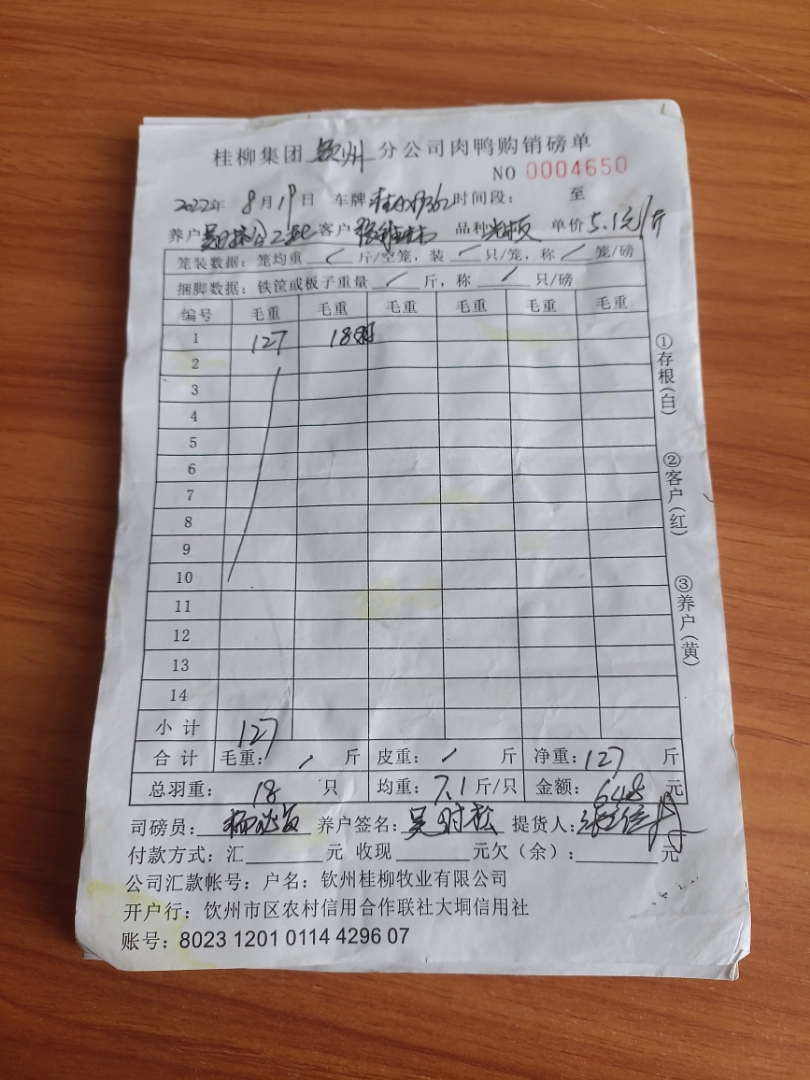 桂柳集团 钦州 分公司肉鸭购销磅单
NO 0004650
2022年 8月19日 车牌 时间段: 至
养户 客户 品种 单价 5.1元/斤
笼装数据: 笼均重 / 斤/空笼, 装 / 只/笼, 称 / 笼/磅
捆脚数据: 铁筐或板子重量 / 斤, 称 / 只/磅
编号 毛重 毛重 毛重 毛重 毛重 毛重
1 127 18
2
3
4
5
6
7
8
9
10
11
12
13
14
小计 127
合计 毛重: / 斤 皮重: / 斤 净重: 127 斤
总羽重: 18 只 均重: 7.1 斤/只 金额: 648 元
司磅员: 养户签名: 吴时松 提货人:
付款方式: 汇 元 收现 元欠(余): 元
公司汇款帐号: 户名: 钦州桂柳牧业有限公司
开户行: 饮州市区农村信用合作联社大垌信用社
账号: 8023 1201 0114 4296 07
①存根(白)
②客户(红)
③养户(黄)